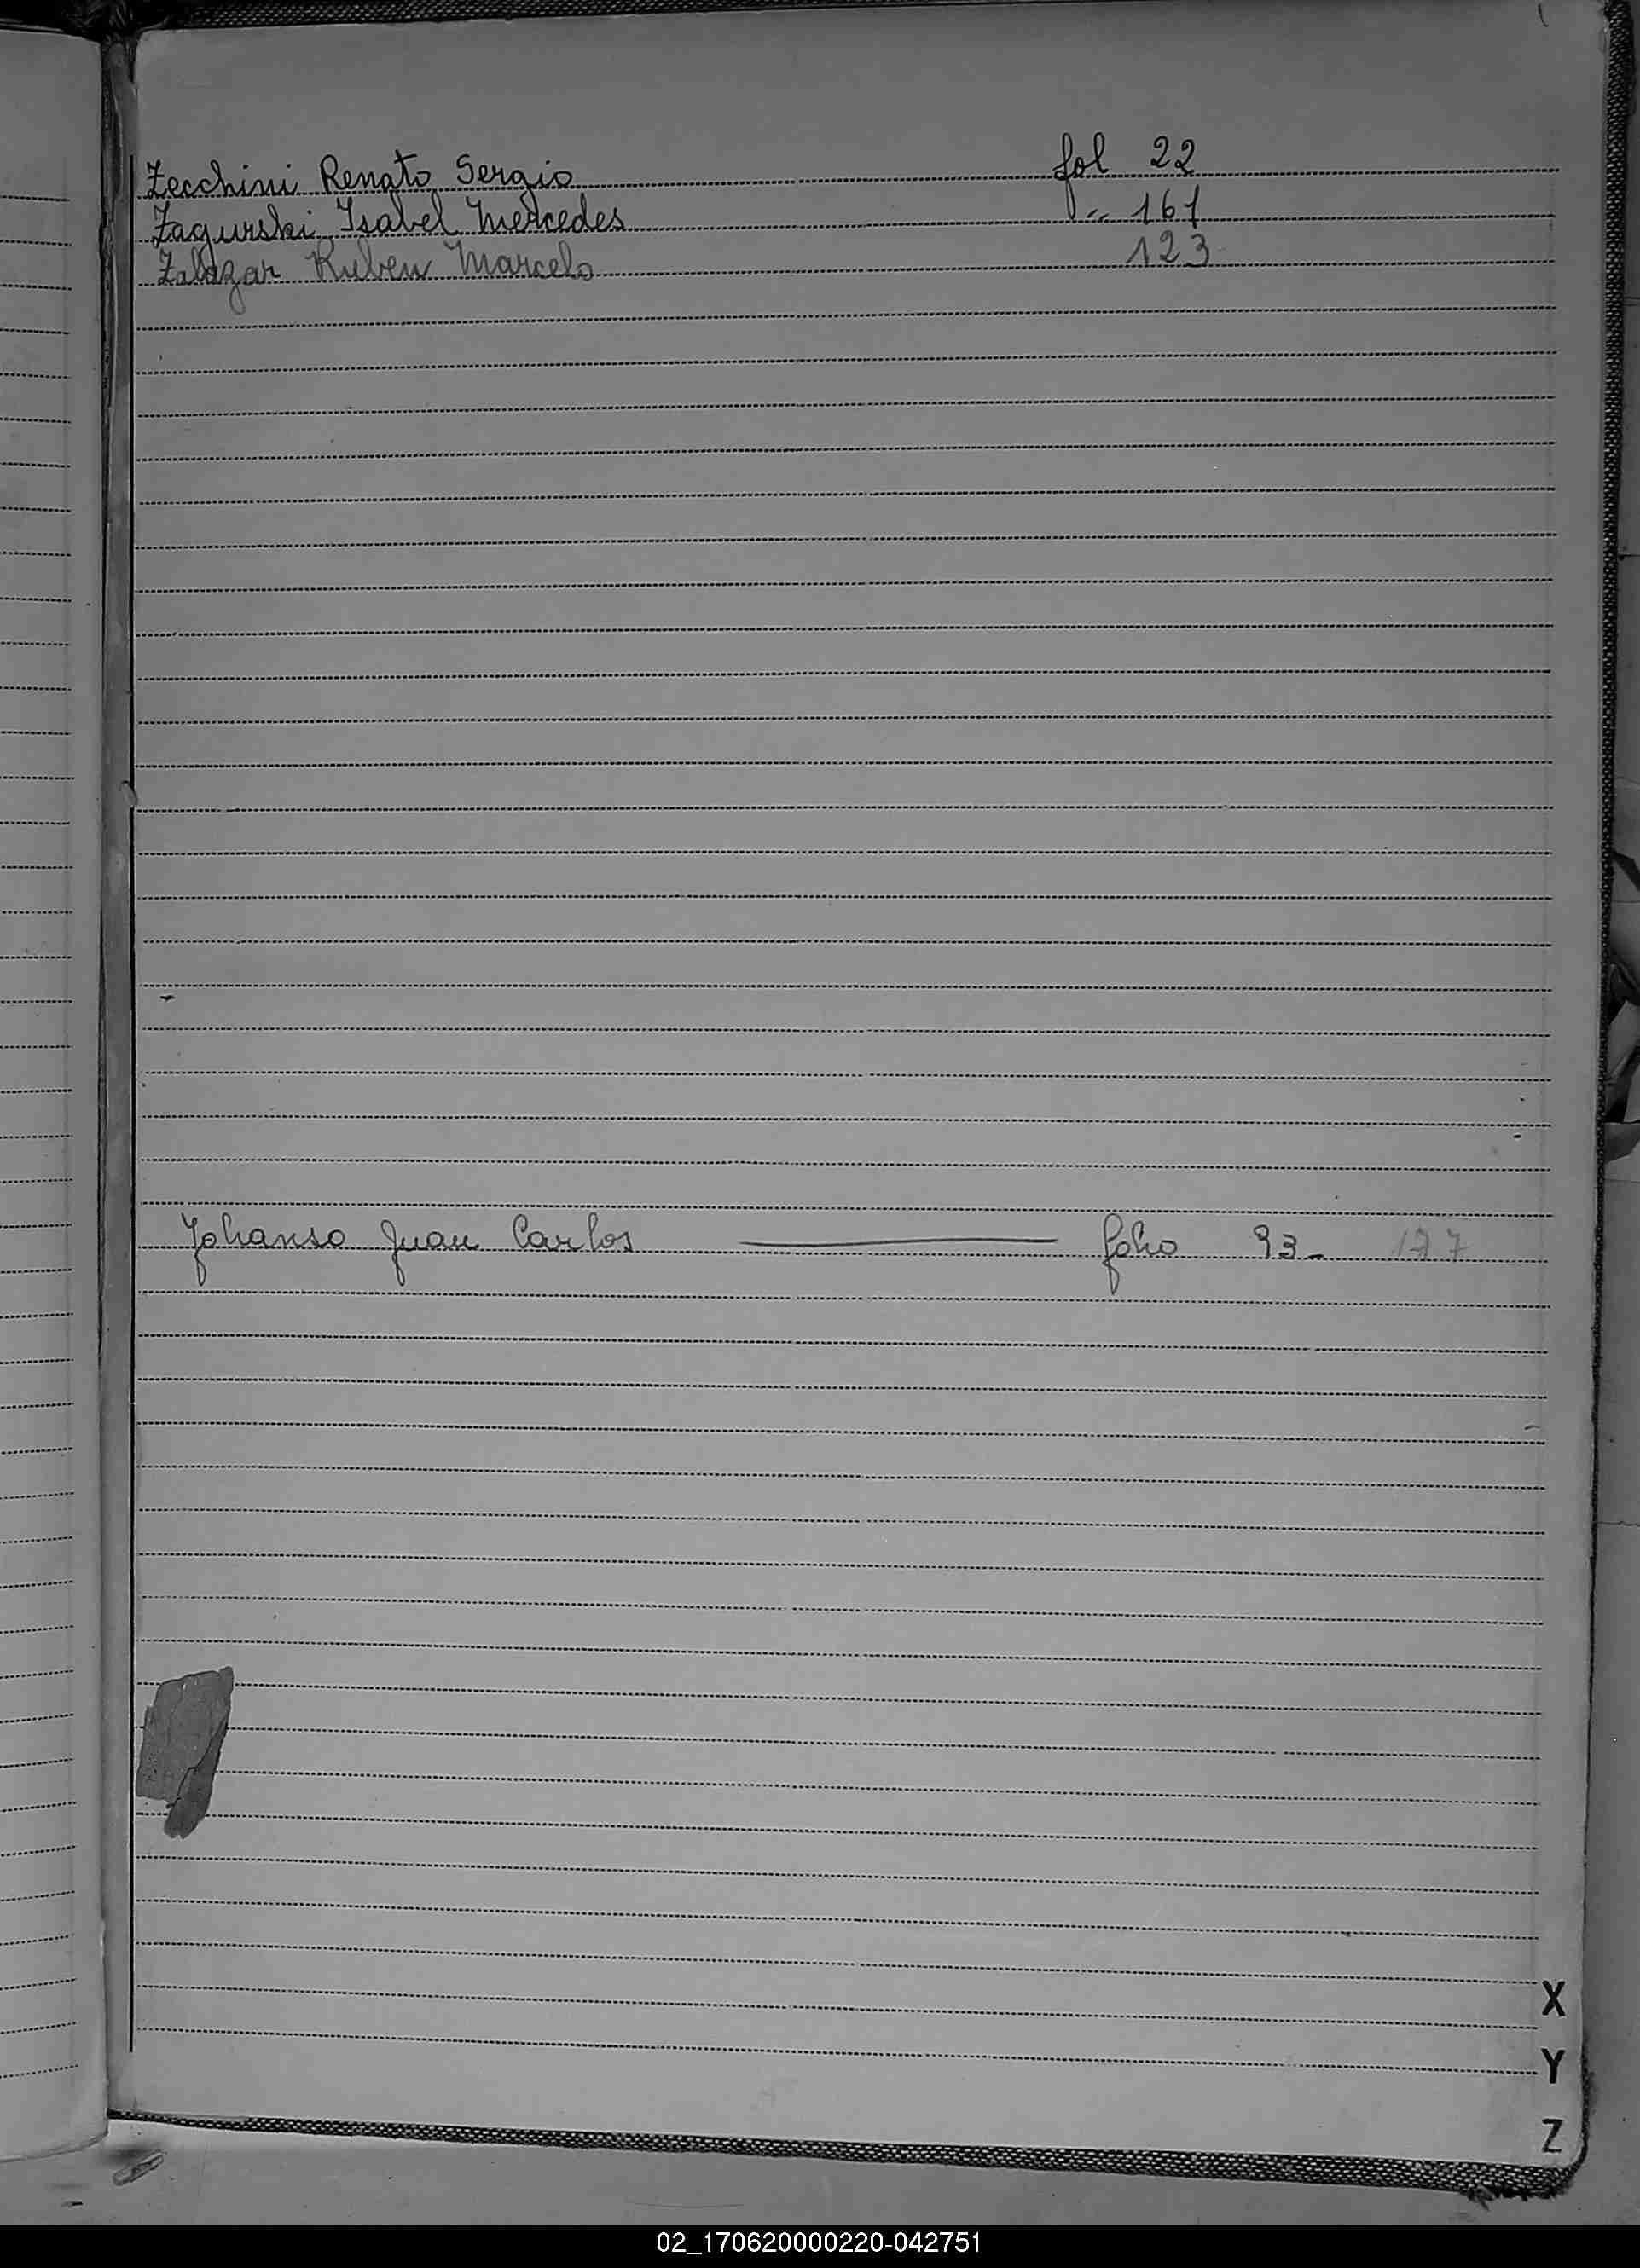 Zecchini Renato Sergio fol 22
Zagurski Isabel Mercedes " 161
Zalazar Ruben Marcelo 123
Yohanso Juan Carlos folio 93- 177
X
Y
Z
02_170620000220-042751